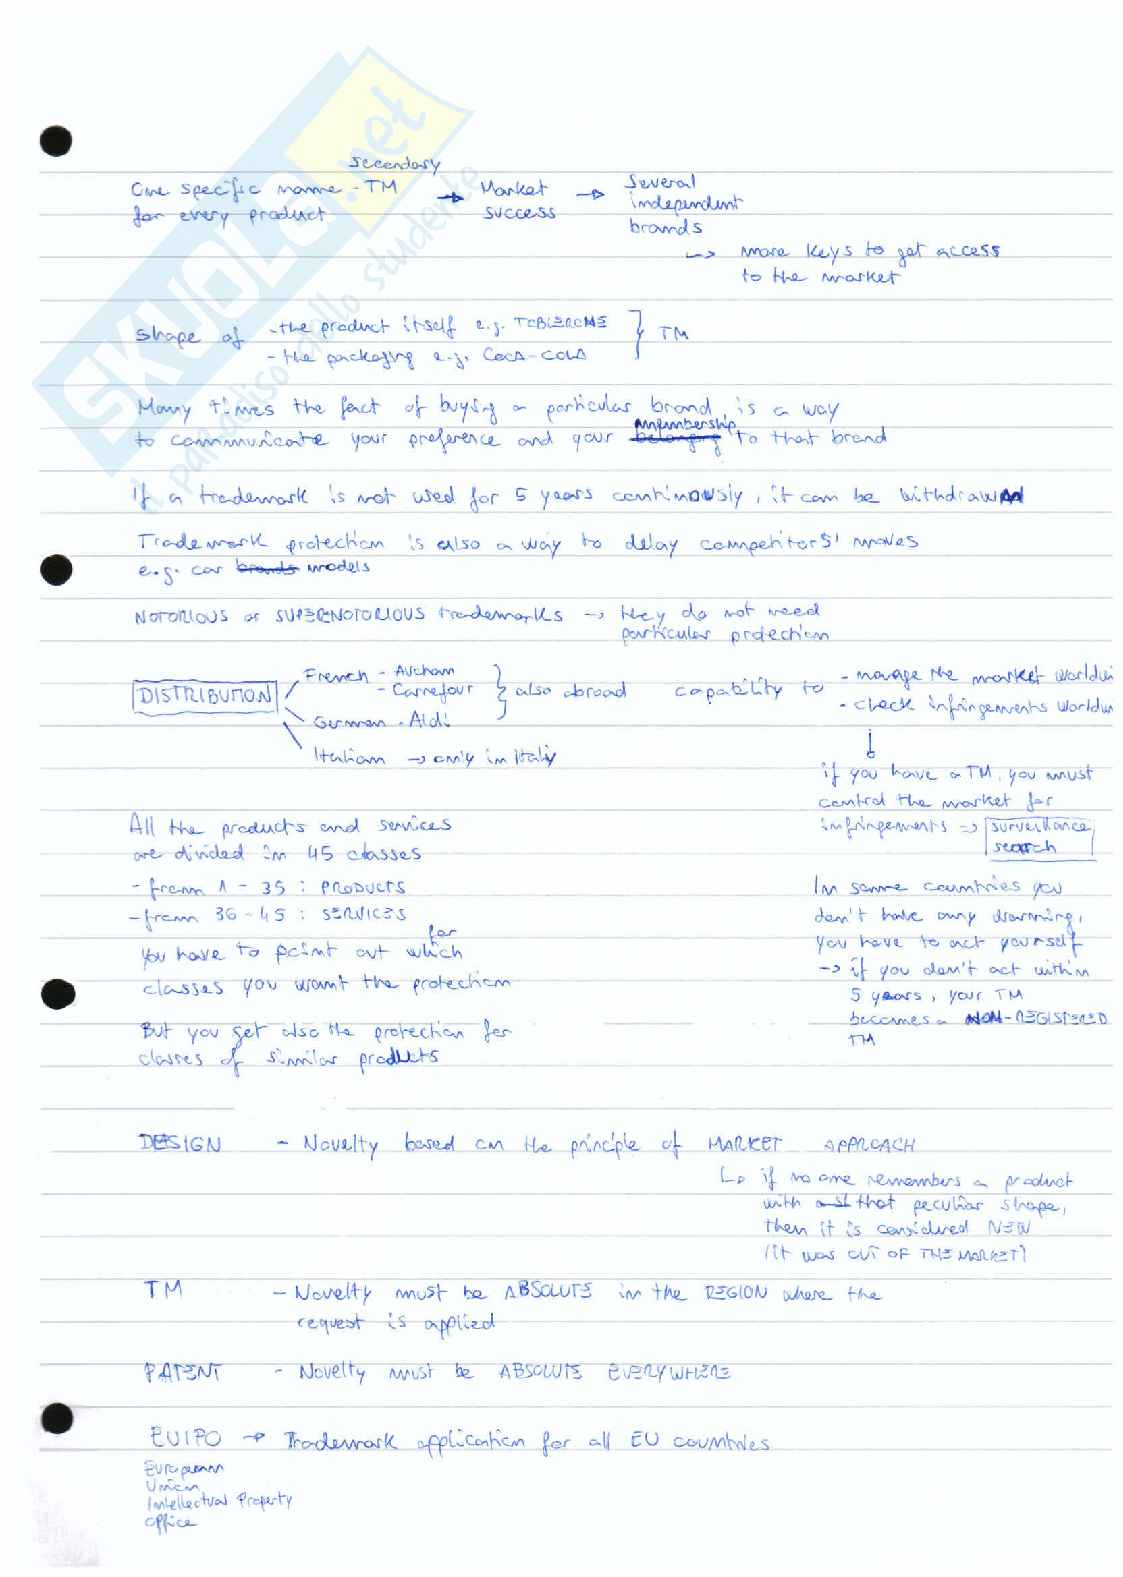 SKUOLA.net
il paradiso dello studente
secondary
One specific name - TM → Market → Several
for every product success independent
brands
↳ more keys to get access
to the market
Shape of - the product itself e.g. TOBLERONE } TM
- the packaging e.g. COCA-COLA
Many times the fact of buying a particular brand is a way
membership
to communicate your preference and your belonging to that brand
If a trademark is not used for 5 years continously, it can be withdrawn
Trademark protection is also a way to delay competitors' moves
e.g. car brands models
NOTORIOUS or SUPERNOTORIOUS trademarks → they do not need
particular protection
DISTRIBUTION
French - Auchan
- Carrefour
German - Aldi
} also abroad
Italian → only in Italy
capability to - manage the market worldwi
- check infringements worldw
if you have a TM, you must
control the market for
infringements ⇒ surveillance
search
All the products and services
are divided in 45 classes
- from 1 - 35 : PRODUCTS
- from 36 - 45 : SERVICES
for
you have to point out which
classes you want the protection
But you get also the protection for
classes of similar products
In some countries you
don't have any warning,
you have to act yourself
→ if you don't act within
5 years, your TM
becomes a NON-REGISTERED
TM
DESIGN - Novelty based on the principle of MARKET APPROACH
↳ if no one remembers a product
with that peculiar shape,
then it is considered NEW
(it was OUT OF THE MARKET)
TM - Novelty must be ABSOLUTE in the REGION where the
request is applied
PATENT - Novelty must be ABSOLUTE EVERYWHERE
EUIPO → Trademark application for all EU countries
European
Union
Intellectual Property
Office